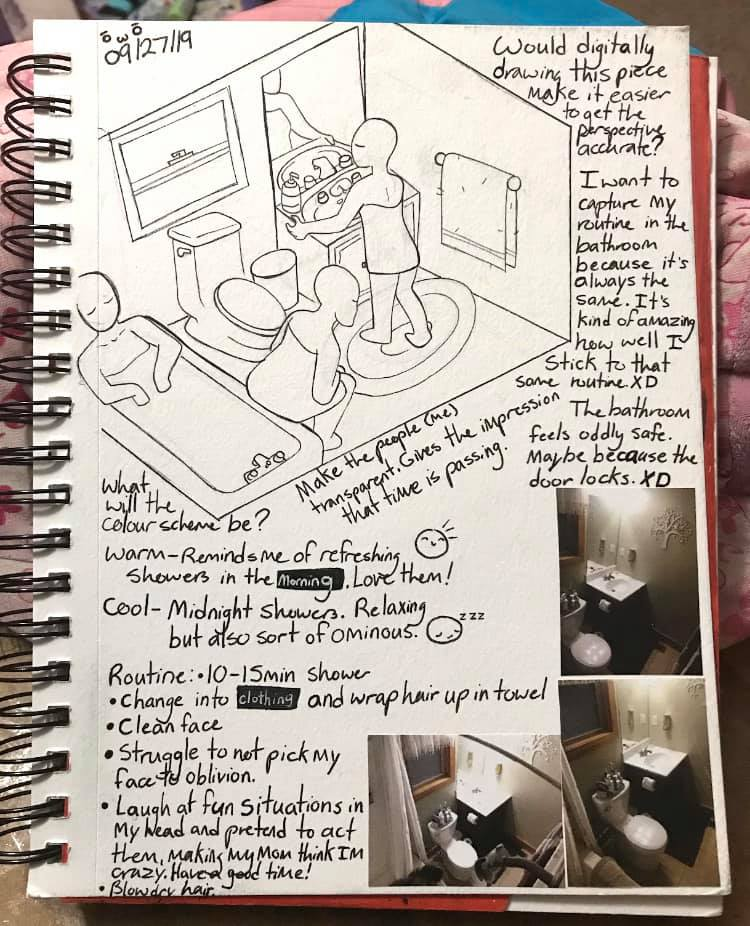 ō w ō
09/27/19
Would digitally
drawing this piece
make it easier
to get the
perspective
accurate?
I want to
capture my
routine in the
bathroom
because it's
always the
same. It's
kind of amazing
how well I
stick to that
same routine XD
The bathroom
feels oddly safe.
Maybe because the
door locks. XD
Make the people (me)
transparent. Gives the impression
that time is passing.
What
will the
colour scheme be?
Warm - Reminds me of refreshing
showers in the Morning. Love them!
Cool - Midnight showers. Relaxing
but also sort of ominous. zzz
Routine: • 10-15min shower
• Change into clothing and wrap hair up in towel
• Clean face
• Struggle to not pick my
face to oblivion.
• Laugh at fun situations in
my head and pretend to act
them, making my Mom think I'm
crazy. Have a good time!
• Blowdry hair.